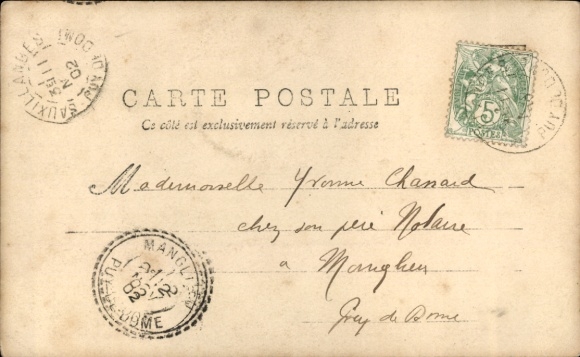 SAUXILLANGES
PUY DE DOME
02
CARTE POSTALE
Ce côté est exclusivement réservé à l'adresse
5c
POSTES
PUY
Mademoiselle Yvonne Chassard
chez son père Notaire
à Manglieu
Puy de Dome
MANGLIEU
02
PUY-DE-DOME